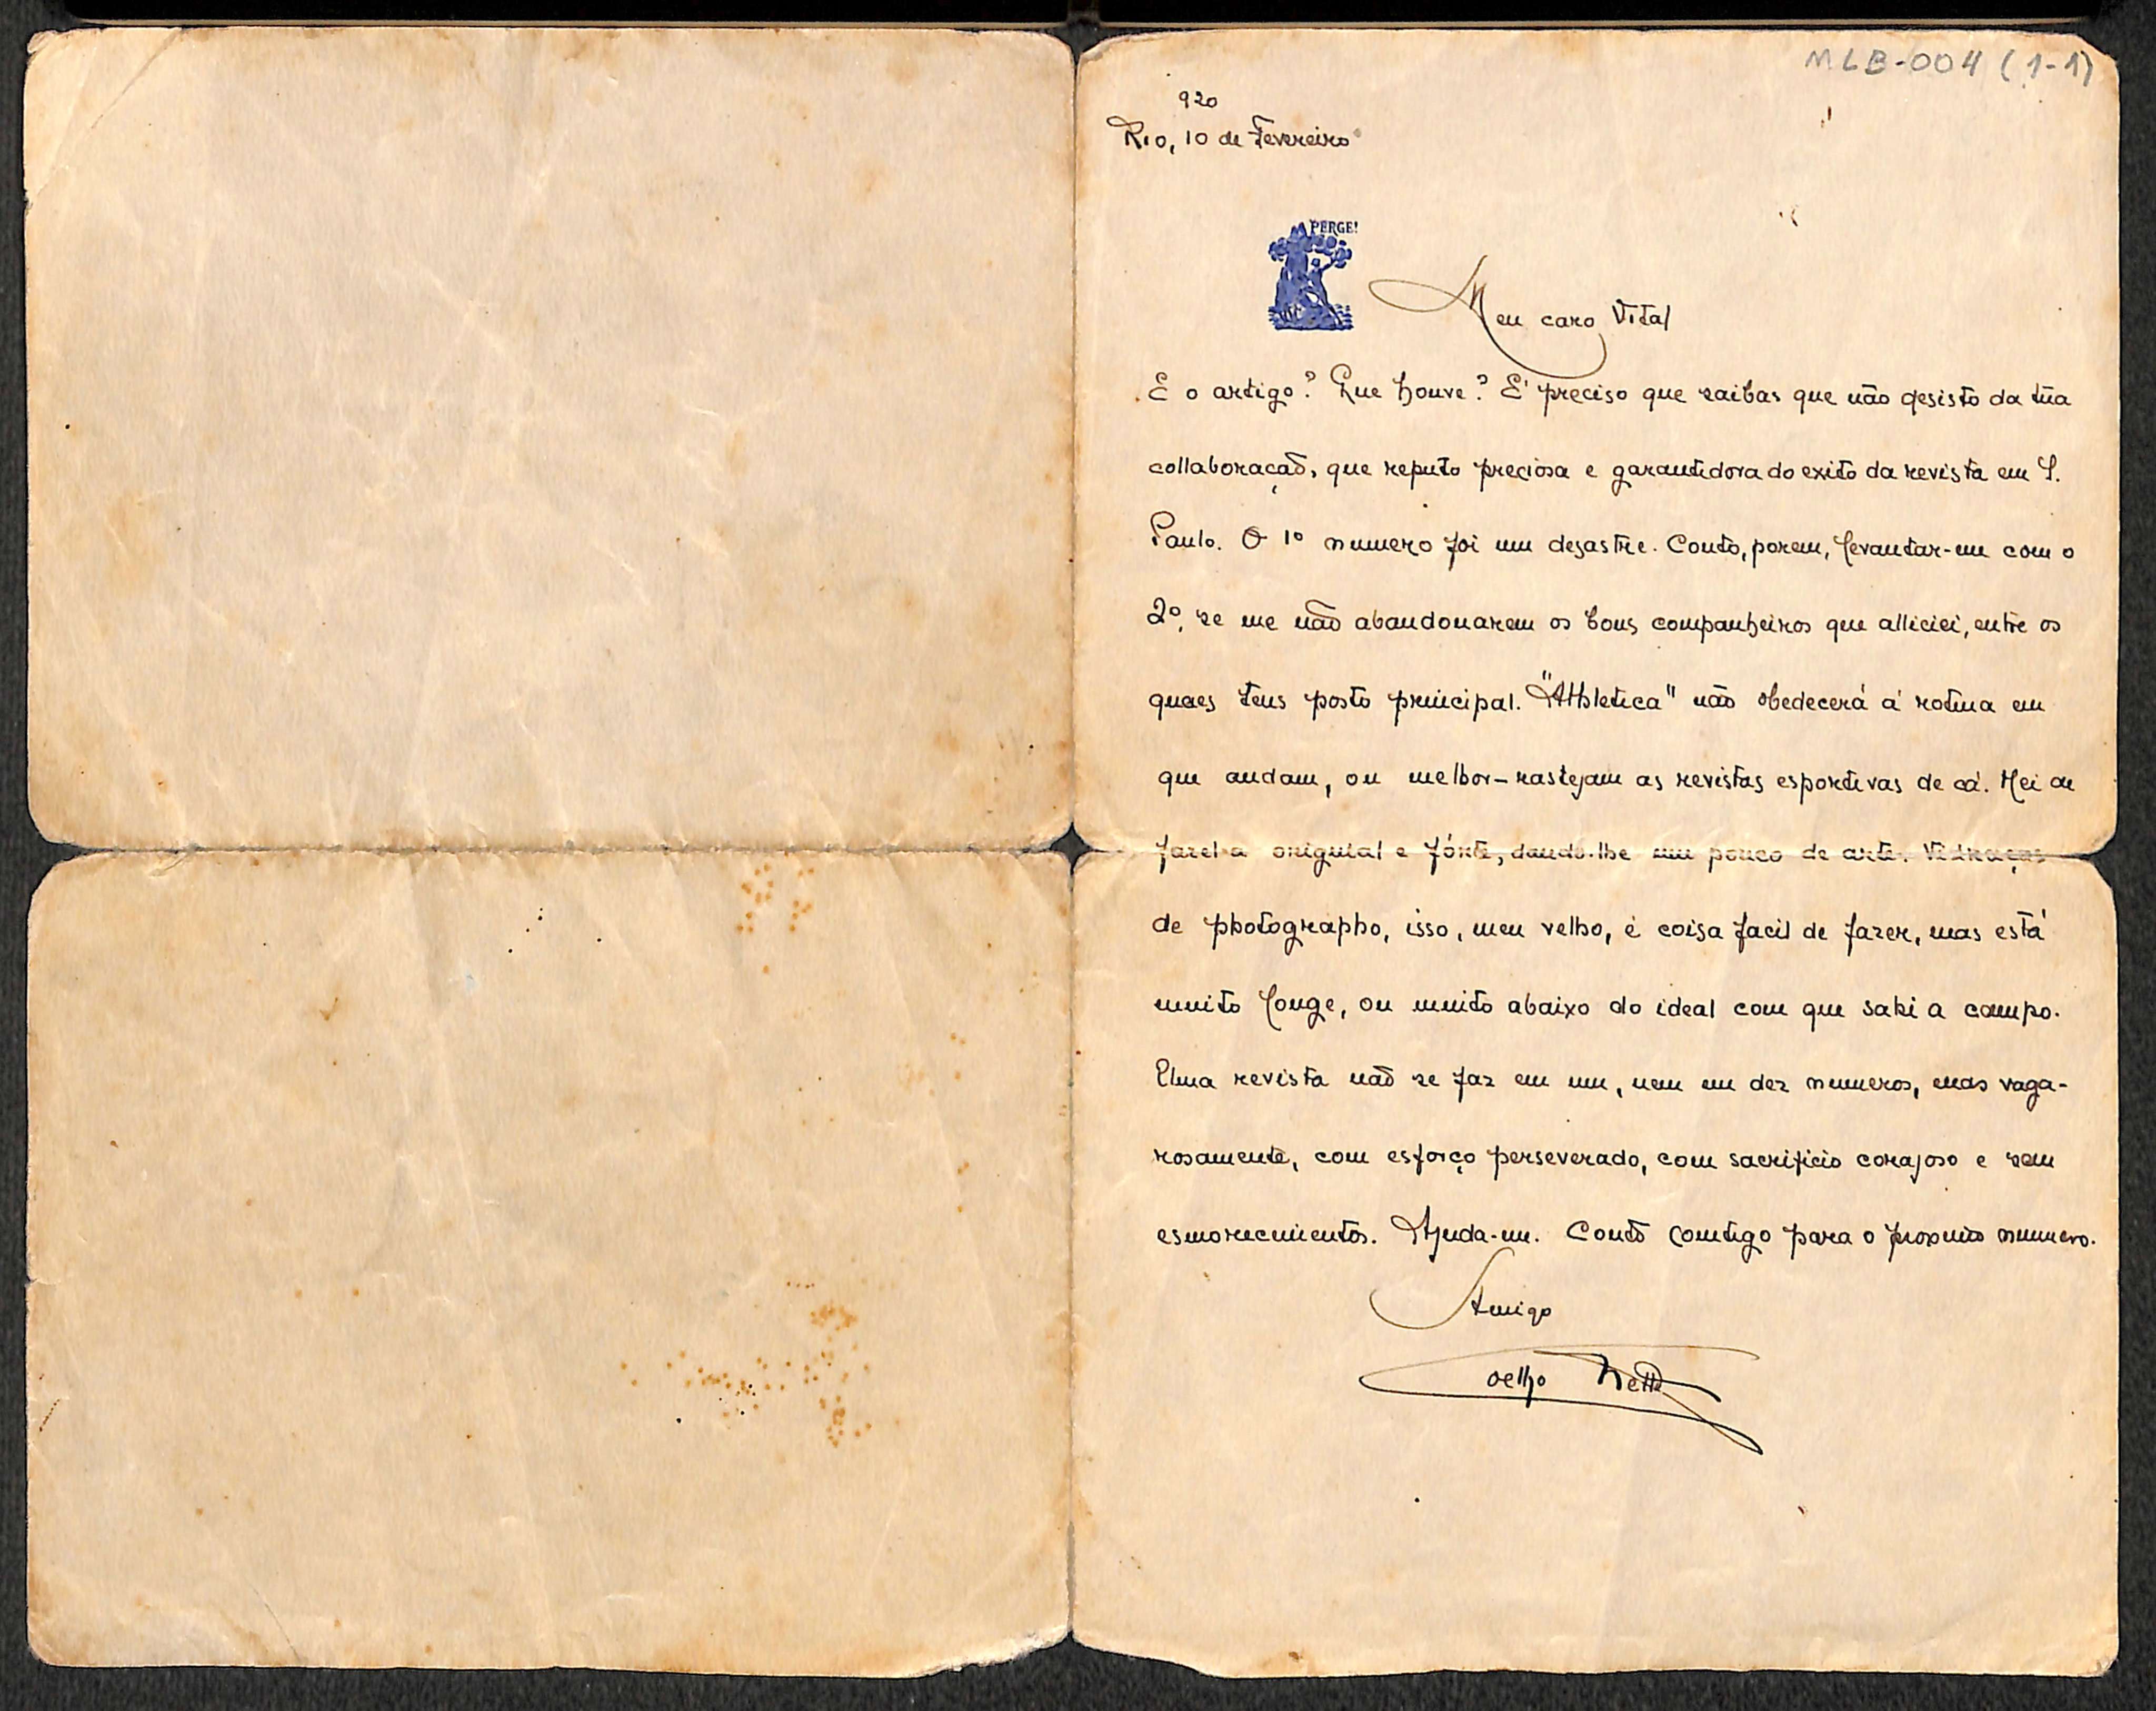 MLB-004 (1-1)
920
Rio, 10 de Fevereiro
PERGE!
Meu caro Vital
E o artigo? Que houve? E' preciso que saibas que não desisto da tua
collaboração, que reputo preciosa e garantidora do exito da revista em S.
Paulo. O 1º numero foi um desastre. Conto, porem, levantar-me com o
2º, se me não abandonarem os bons companheiros que alliciei, entre os
quaes tens posto principal. "Athletica" não obedecerá á rotina em
que andam, ou melhor-rastejam as revistas esportivas de cá. Hei de
fazel-a original e forte, dando-lhe um pouco de arte. Vidraças
de photographo, isso, meu velho, é coisa facil de fazer, mas está
muito longe, ou muito abaixo do ideal com que sahi a campo.
Uma revista não se faz em um, nem em dez numeros, mas vaga-
rosamente, com esforço perseverado, com sacrificio corajoso e sem
esmorecimentos. Ajuda-me. Conto comtigo para o proximo numero.
Amigo
Coelho Netto